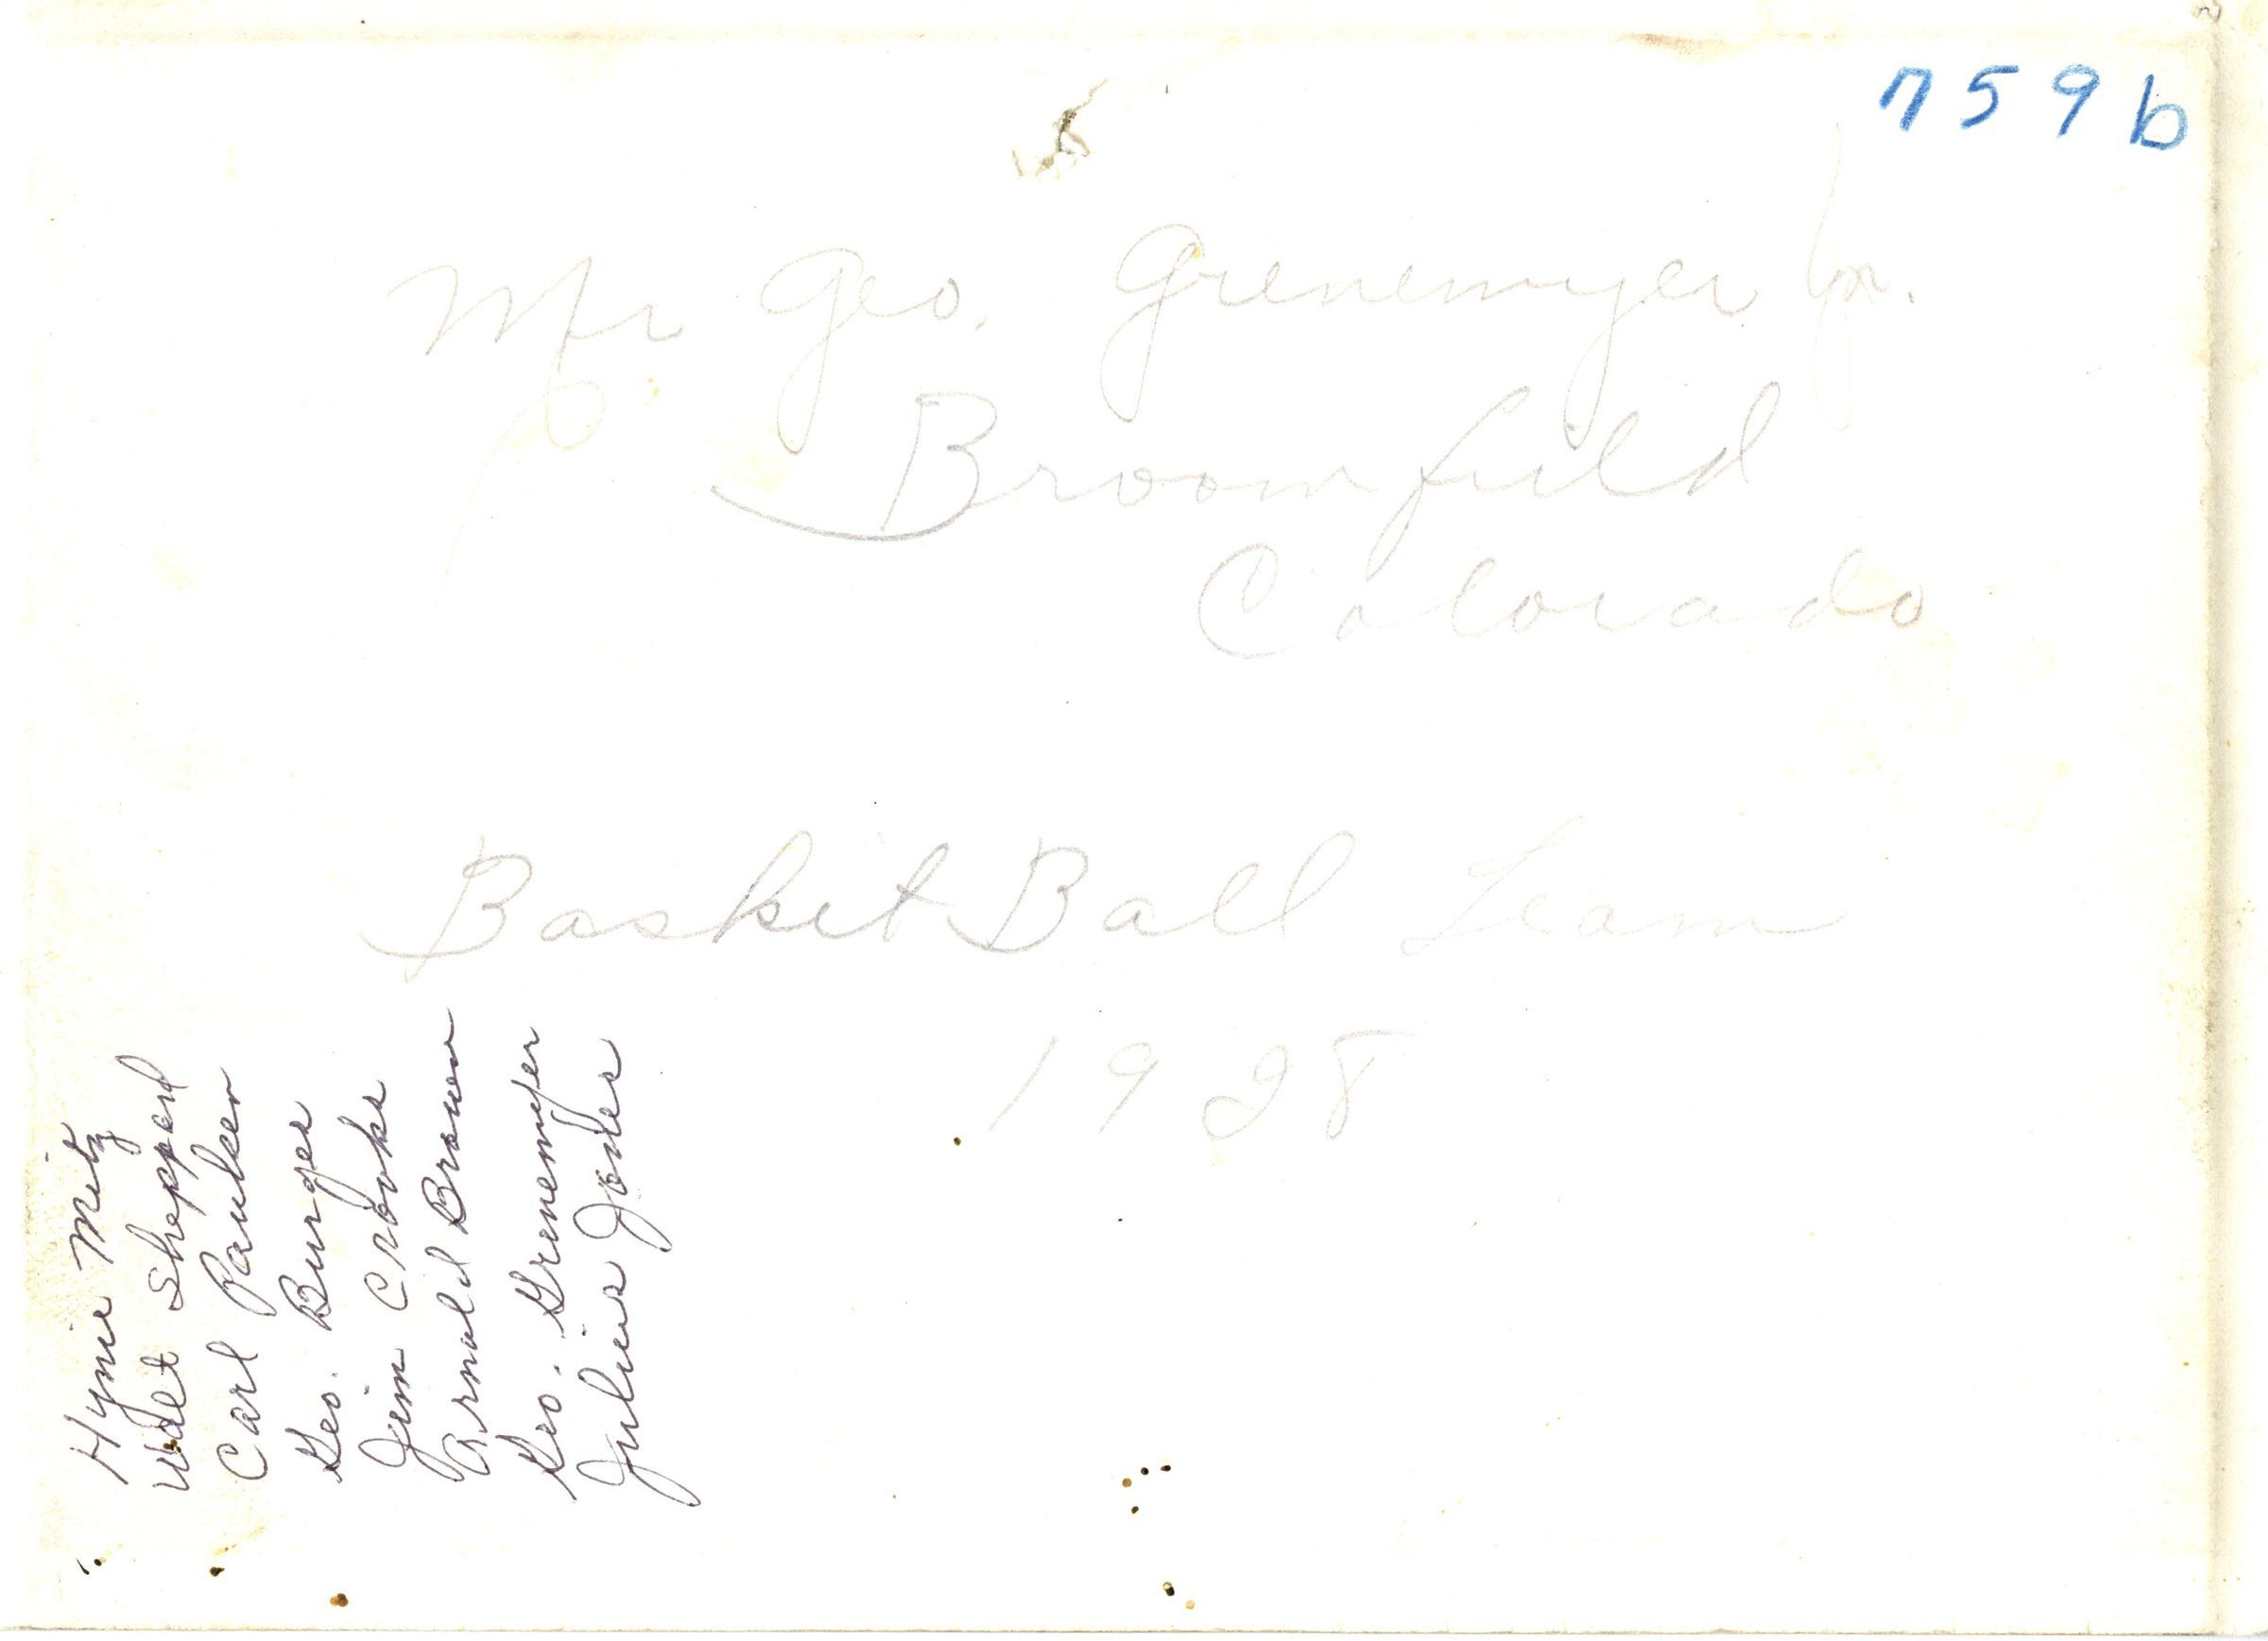 759b
Mr Geo. Grenemyer Jr.
Broomfield
Colorado
Basket Ball Team
1928
Hymie Mitz
Walt Shepperd
Carl Paulsen
Geo. Burger
Jim Crooks
Arnold Brown
Geo. Grenemyer
Julius Jones